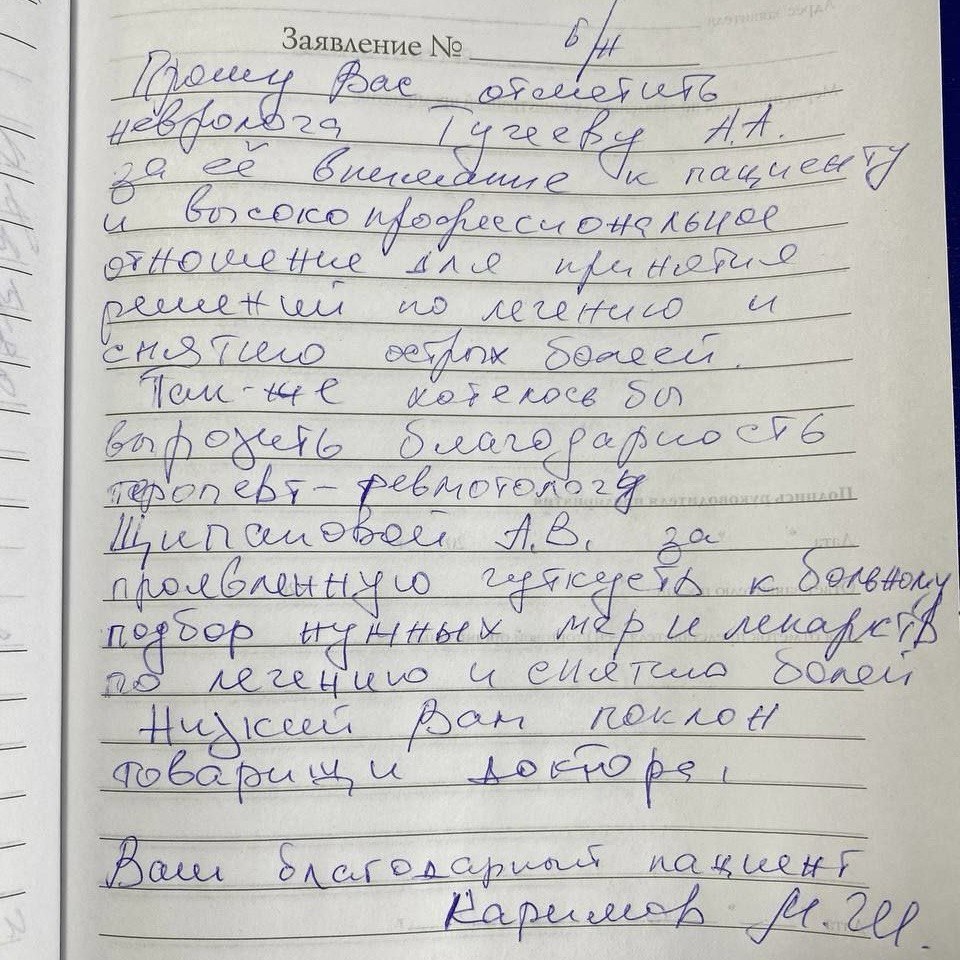 Заявление № б/н
Прошу Вас отметить
невролога Тучееву А.А.
за её внимание к пациенту
и высокопрофессиональное
отношение для принятия
решений по лечению и
снятию острых болей.
Так-же хотелось бы
выразить благодарность
терапевт-ревмотологу
Щипановой А.В. за
проявленную чуткость к больному
подбор нужных мер и лекарств
по лечению и снятию болей
Низкий Вам поклон
товарищи доктора,
Ваш благодарный пациент
Каримов М.Ш.